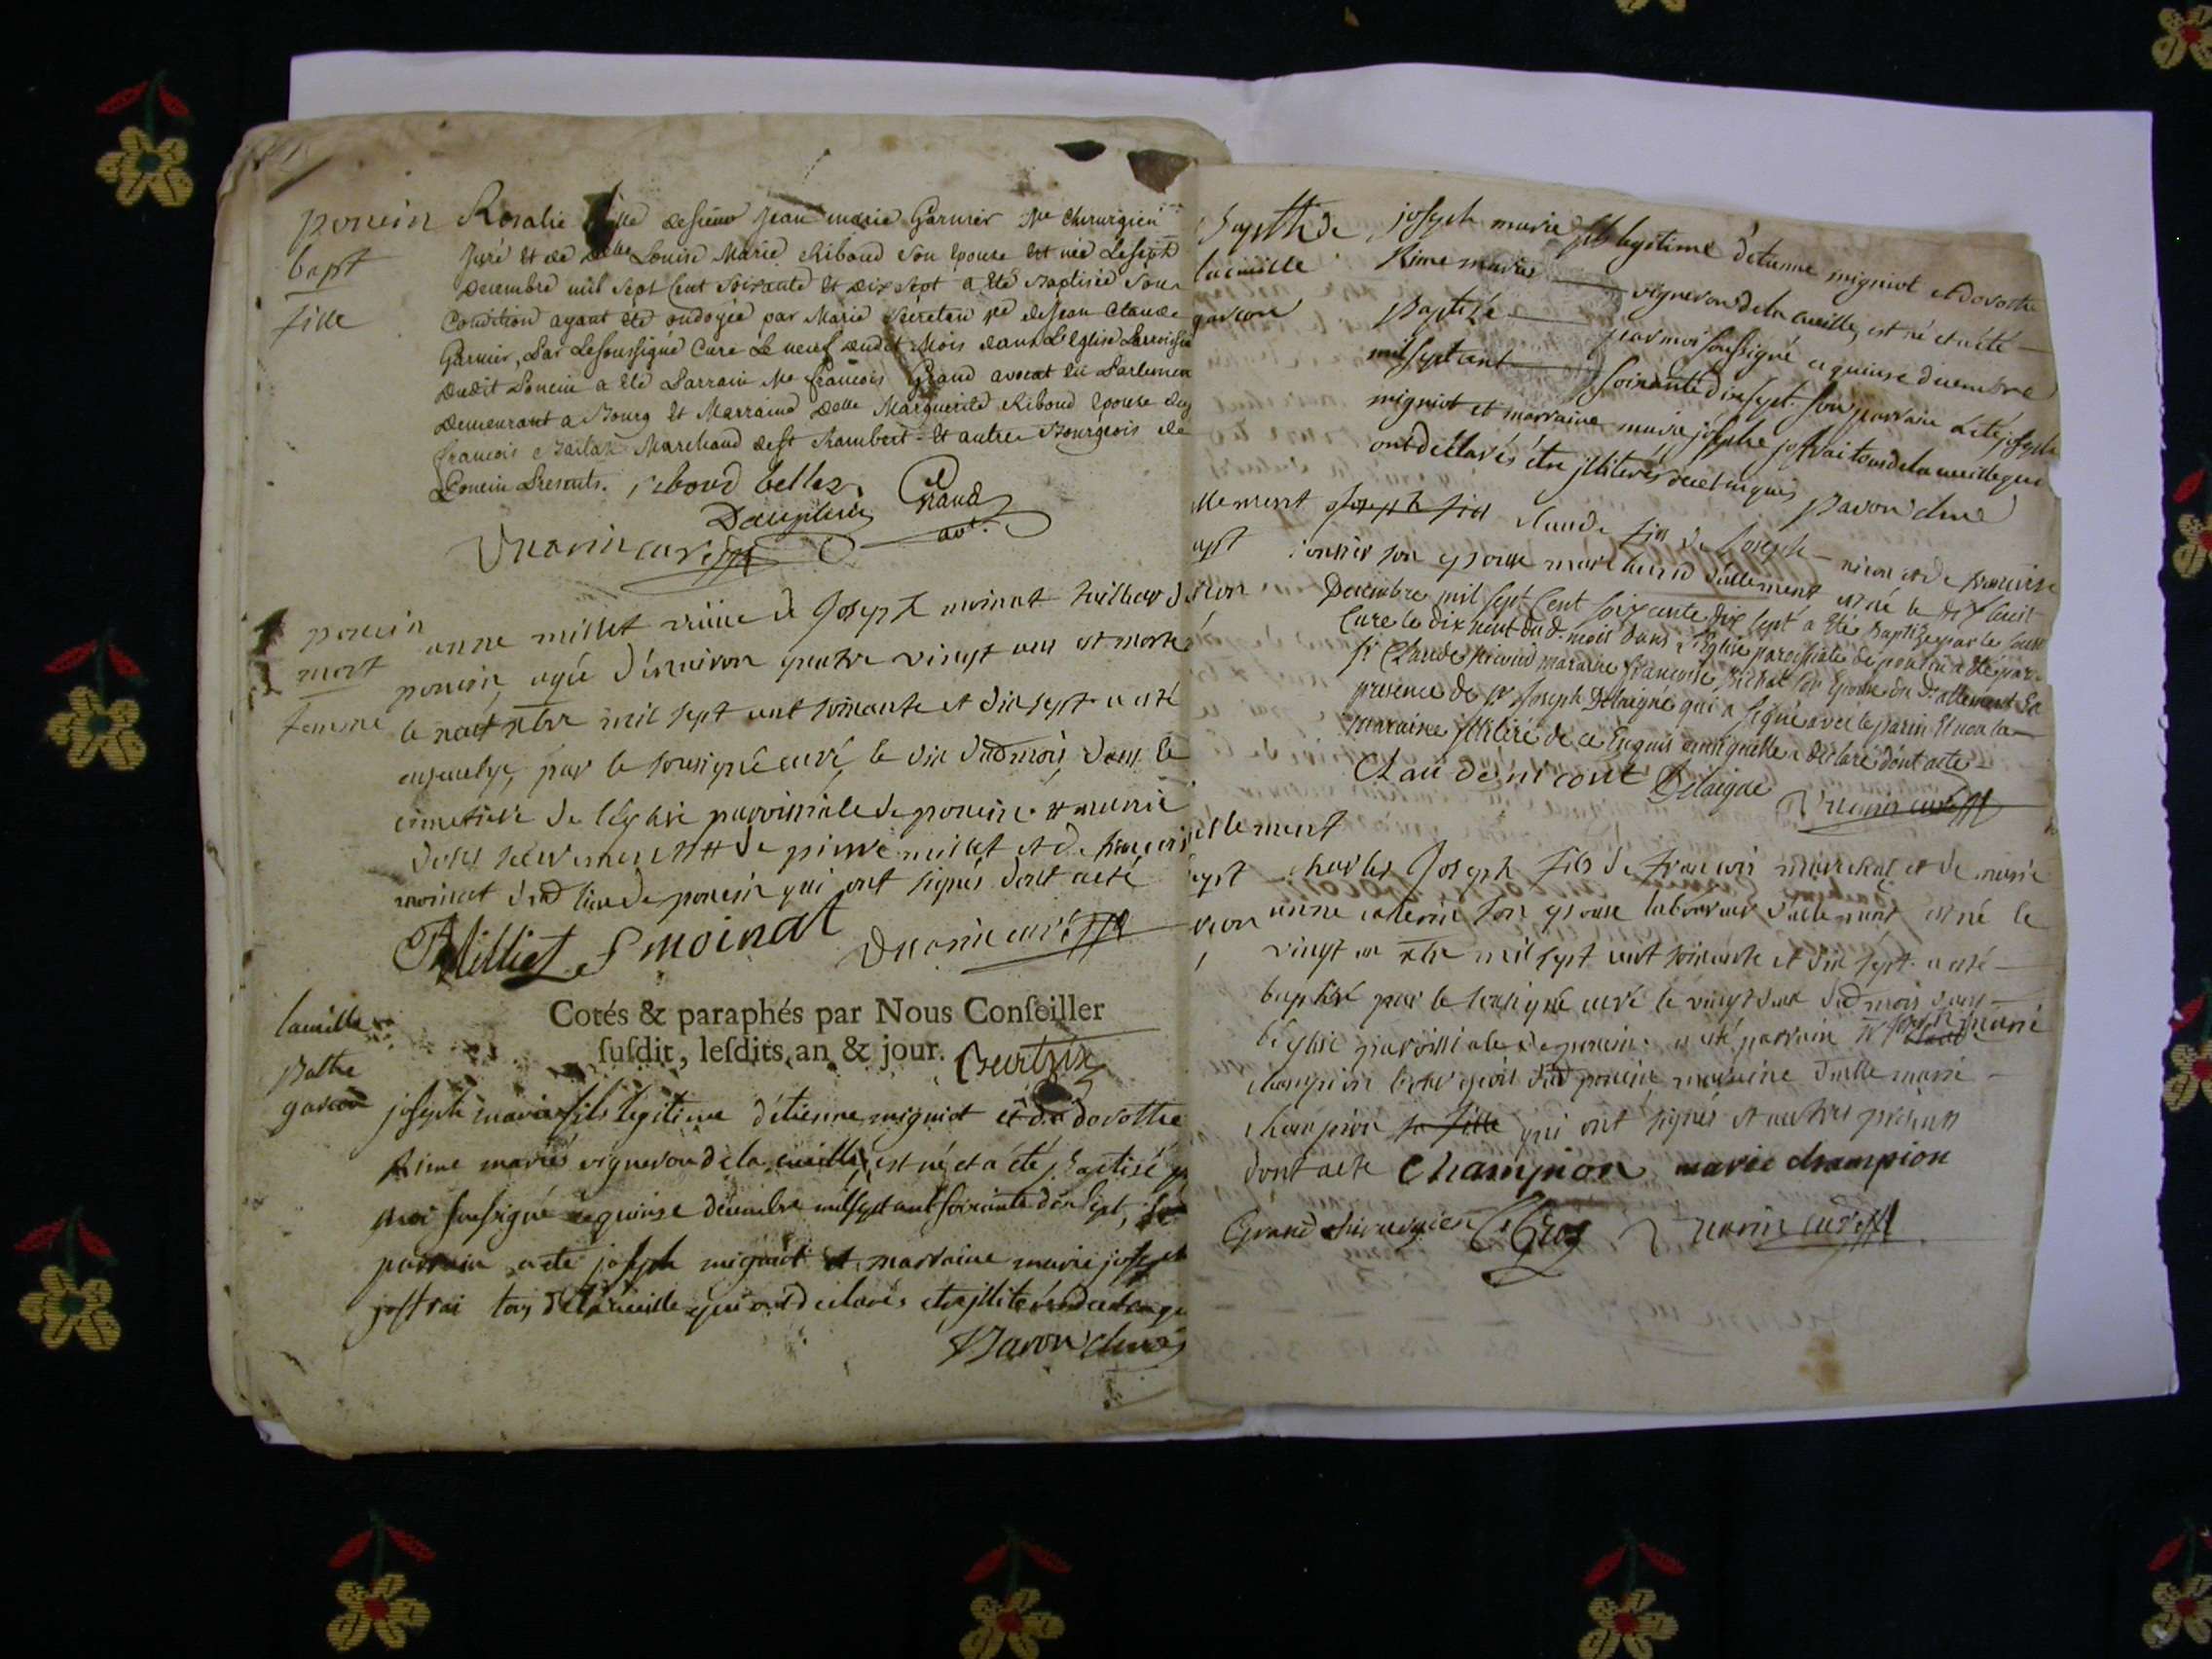 poncin
bapt
fille
Rosalie fille de sieur Jean marie Garnier Me Chirurgien
Juré et de Delle Louise Marie Riboud Son Epouse Est née Le sept
Decembre mil Sept Cent Soixante et dix sept a été Baptisée Sous
Condition ayant été ondoyée par Marie de Jean Claude
Garnier, Par Le Soussigné Curé Le neuf dudit Mois dans L'Eglise Parroissia
dudit Poncin a été Parrain Me françois Grand avocat en Parlemen
Demeurant a Bourg Et Marraine Delle Marguerite Riboud Epouse du
françois Marchand de St Rambert Et autres Bourgeois de
Poncin Presents. riboud bellez.
Grand
avt.
curé
poncin
mort
femme
anne millet veuve de Joseph moinat tailleur d
poncin, agée d'environ quatre vingt ans est morte
le neuf xbre mil sept cent soixante et dix sept a été
par le sousigné curé, le dix dud mois, dans le
cimetiere de l'eglise parroissiale de poncin.
de pierre millet et de francois
moinat dud lieu de poncin qui ont signés dont acte
Milliet f moinat curé
Cotés & paraphés par Nous Conſeiller
ſuſdit, leſdits an & jour.
la cuille
Batte
garcon
joseph marie fils legitime d'étienne migniot et de dorothe
Rime mariés vigneron de la cueille, est né et a été Baptisé p
moi soussigné ce quinse décembre mil sept cent soixante dix sept, son
parrain a été joseph migniot et marraine marie joseph
joffrai tous de la cueille qui ont declarés etre illiterés de ce enqu
Bavon Curé
Baptth de
la cuille
garcon
joseph marie fils legitime d'etienne migniot et dorothe
Rime mariés vigneron de la cueille, est né et a été
Baptizé par moi soussigné ce quinse decembre
mil sept cent soixante dix sept. son parrain a été joseph
migniot et marraine marie josephe joffrai tous de la cueille qui
ont déclarés etre illiterés de ce enquis Bavon Curé
llement
apt
claude fils de Joseph nicou et de francoise
son epouse marchand d'allement est né le dix huit
Decembre mil sept Cent soixante dix sept a été Baptizé par le sous
Curé le dix neuf dud. mois dans l'Eglise paroissiale de poncin a été par
Sr Claude maraine françoise Epouse du Sr allement En
presence de Sr Joseph Delaigue qui a signé avec le parin Et non la
maraine illitéré de ce Enquis ainsi quelle a Déclaré dont acte
Claude nicout Delaigue
curé
allement
apt
charles Joseph fils de francois marechal et de marie
anne son epouse laboureur d'allement est né le
vingt un xbre mil sept cent soixante et dix sept a été
baptisé par le sousigné curé le vingt deux dud mois dans
l'eglise parroissiale de poncin. a été parrain Sr marie
champion bourgeois dud poncin maraine dlle marie
champion sa fille qui ont signés et autres présents
dont acte Champion marie champion
Grand Chirurgien curé